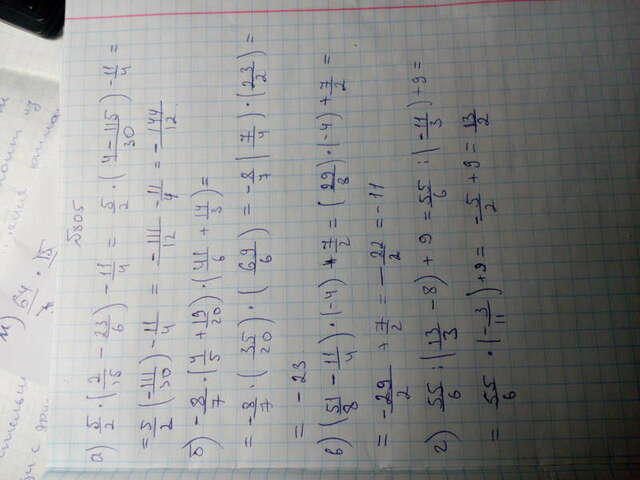 №805
а) 5/2 · (2/15 - 23/6) - 11/4 = 5/2 · (4-115/30) - 11/4 =
= 5/2 (-111/30) - 11/4 = -111/12 - 11/4 = -144/12
б) -8/7 · (4/5 + 19/20) · (41/6 + 14/3) =
= -8/7 · (35/20) · (69/6) = -8/7 (7/4) · (23/2) =
= -23
в) (51/8 - 11/4) · (-4) + 7/2 = (29/8) · (-4) + 7/2 =
= -29/2 + 7/2 = -22/2 = -11
г) 55/6 : (13/3 - 8) + 9 = 55/6 : (-11/3) + 9 =
= 55/6 · (-3/11) + 9 = -5/2 + 9 = 13/2
м) 64 · 15